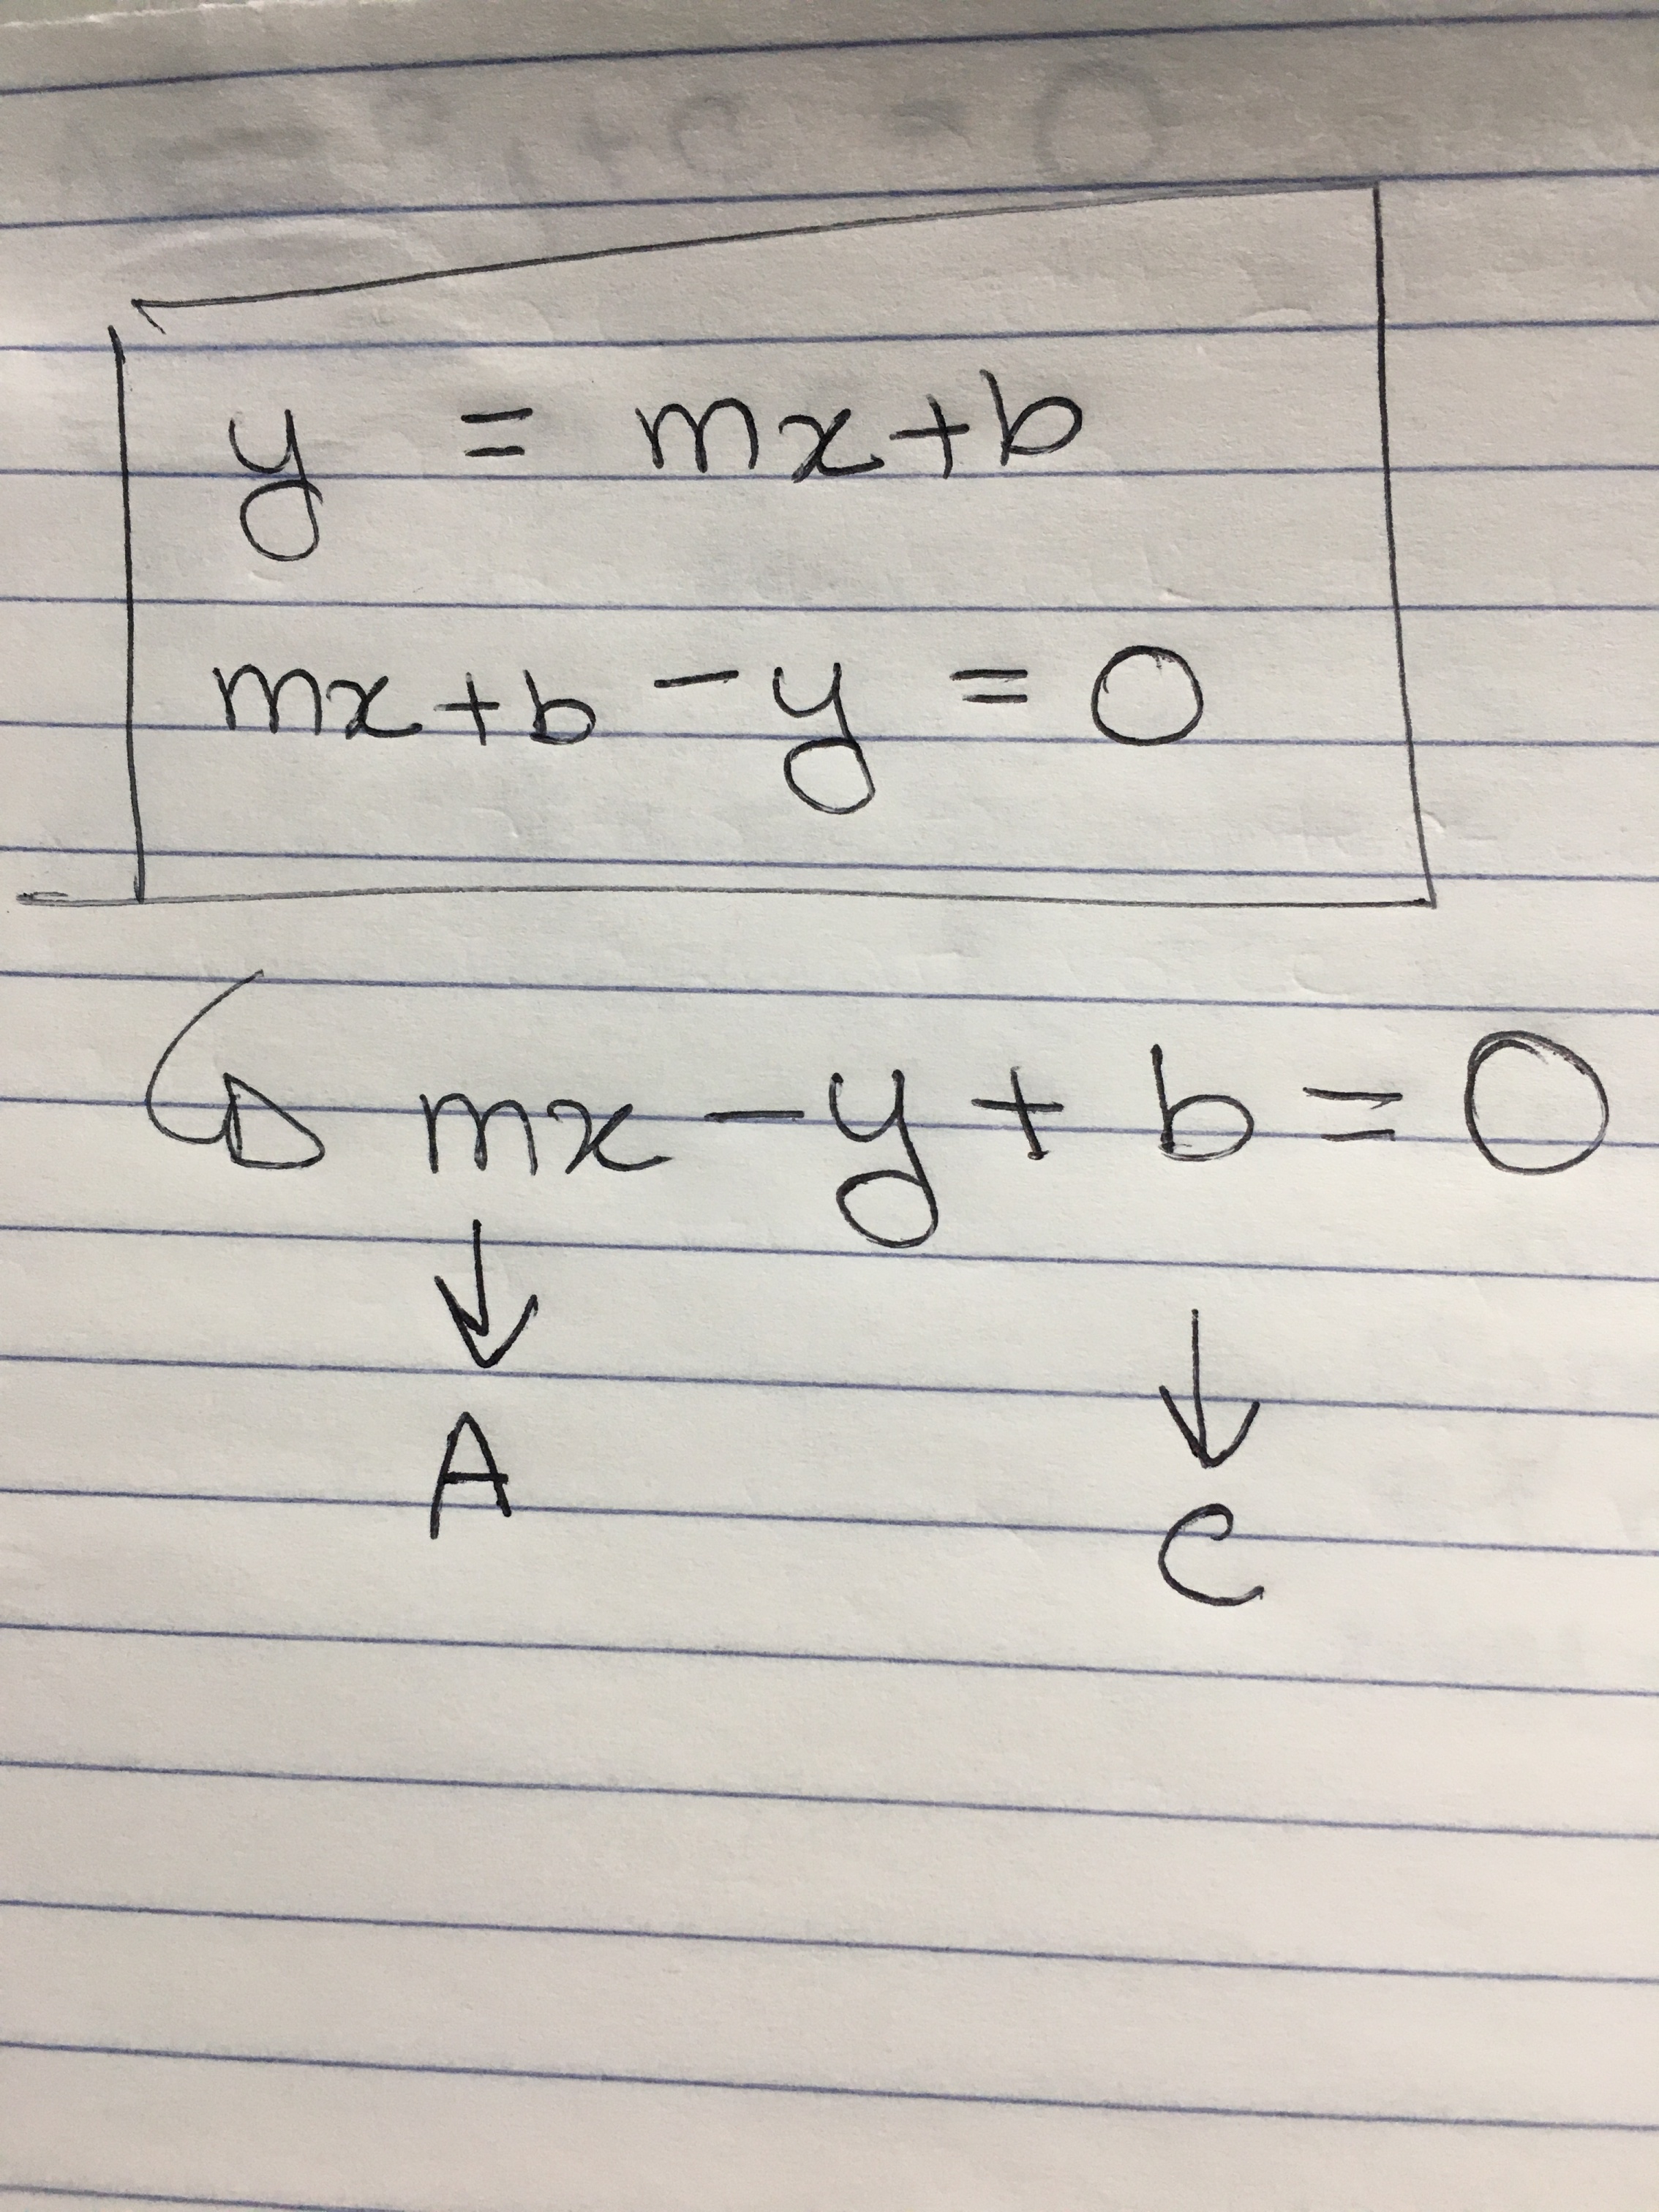 y = mx+b
mx+b-y = 0
mx-y+b=0
A
C